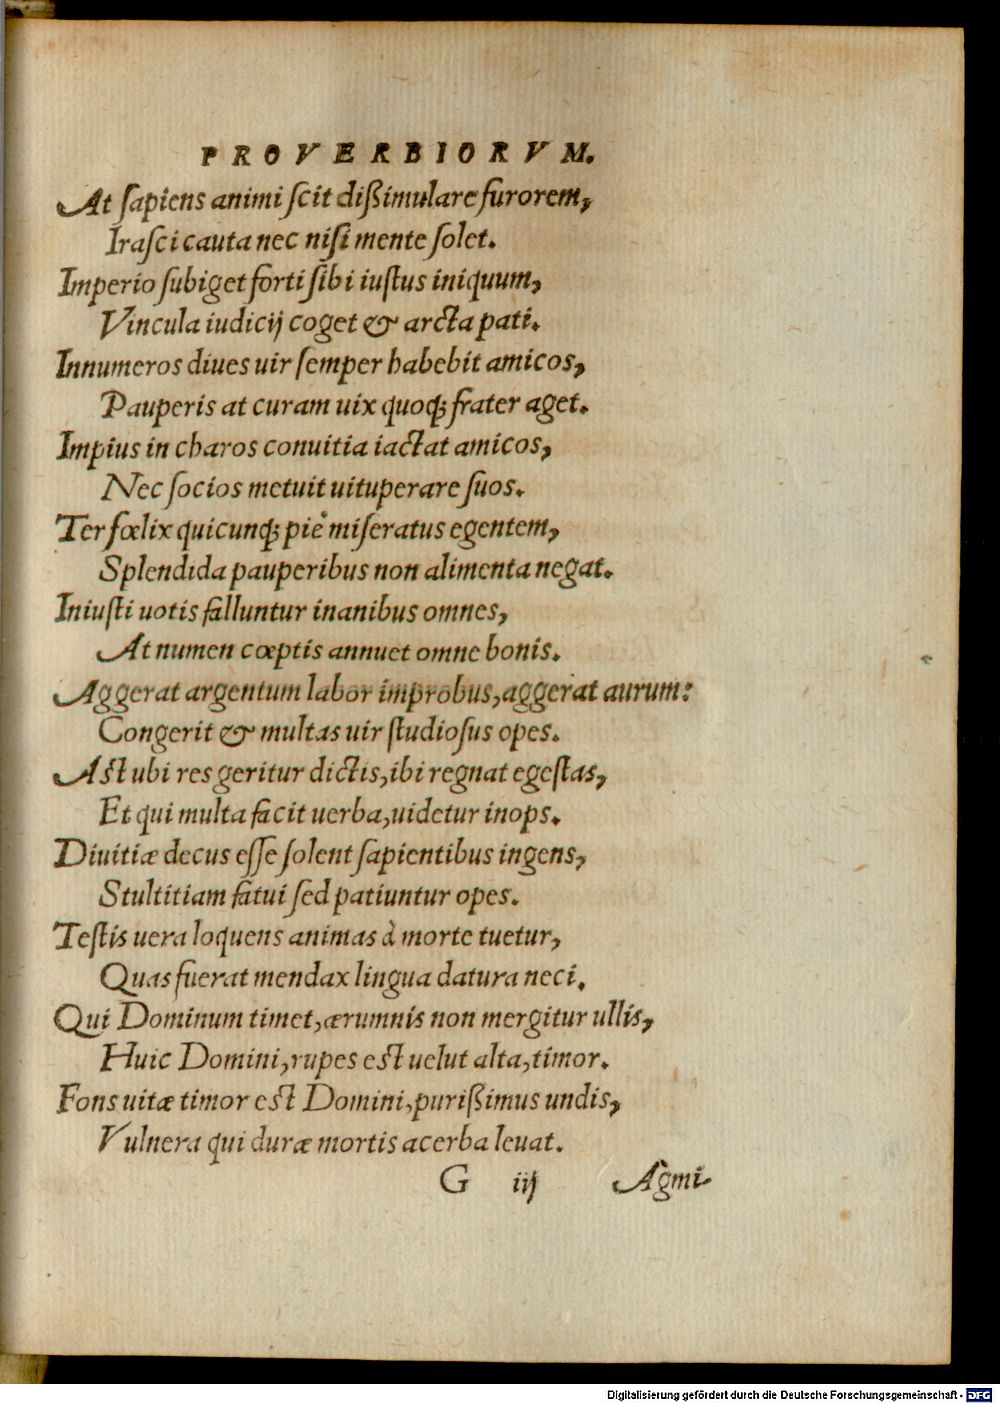 PROVERBIORVM.
At ſapiens animi ſcit dißimulare furorem,
Iraſci cauta nec niſi mente ſolet.
Imperio ſubiget forti ſibi iuſtus iniquum,
Vincula iudicij coget & arcta pati.
Innumeros diues uir ſemper habebit amicos,
Pauperis at curam uix quoq; frater aget.
Impius in charos conuitia iactat amicos,
Nec ſocios metuit uituperare ſuos.
Ter fœlix quicunq; piè miſeratus egentem,
Splendida pauperibus non alimenta negat.
Iniuſti uotis falluntur inanibus omnes,
At numen cœptis annuet omne bonis.
Aggerat argentum labor improbus, aggerat aurum:
Congerit & multas uir ſtudioſus opes.
Aſt ubi res geritur dictis, ibi regnat egeſtas,
Et qui multa facit uerba, uidetur inops.
Diuitiæ decus eſſe ſolent ſapientibus ingens,
Stultitiam fatui ſed patiuntur opes.
Teſtis uera loquens animas à morte tuetur,
Quas fuerat mendax lingua datura neci.
Qui Dominum timet, ærumnis non mergitur ullis,
Huic Domini, rupes eſt uelut alta, timor.
Fons uitæ timor eſt Domini, purißimus undis,
Vulnera qui duræ mortis acerba leuat.
G iij Agmi-
Digitalisierung gefördert durch die Deutsche Forschungsgemeinschaft - DFG